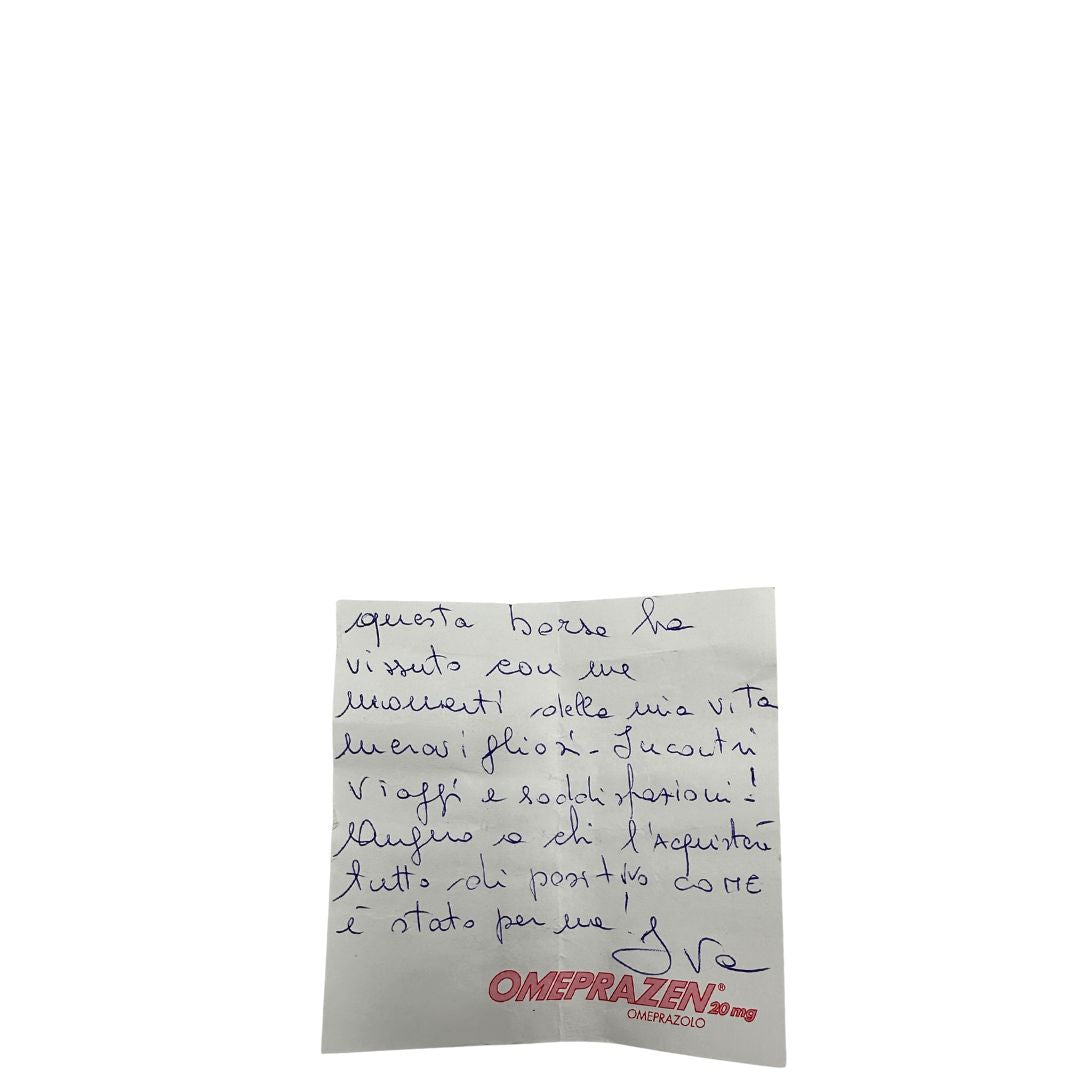 questa borsa ha
vissuto con me
momenti della mia vita
meravigliosi - Incontri
viaggi e soddisfazioni!
Auguro a chi l'Acquisterà
tutto di positivo COME
è stato per me!
Iva
OMEPRAZEN® 20 mg
OMEPRAZOLO